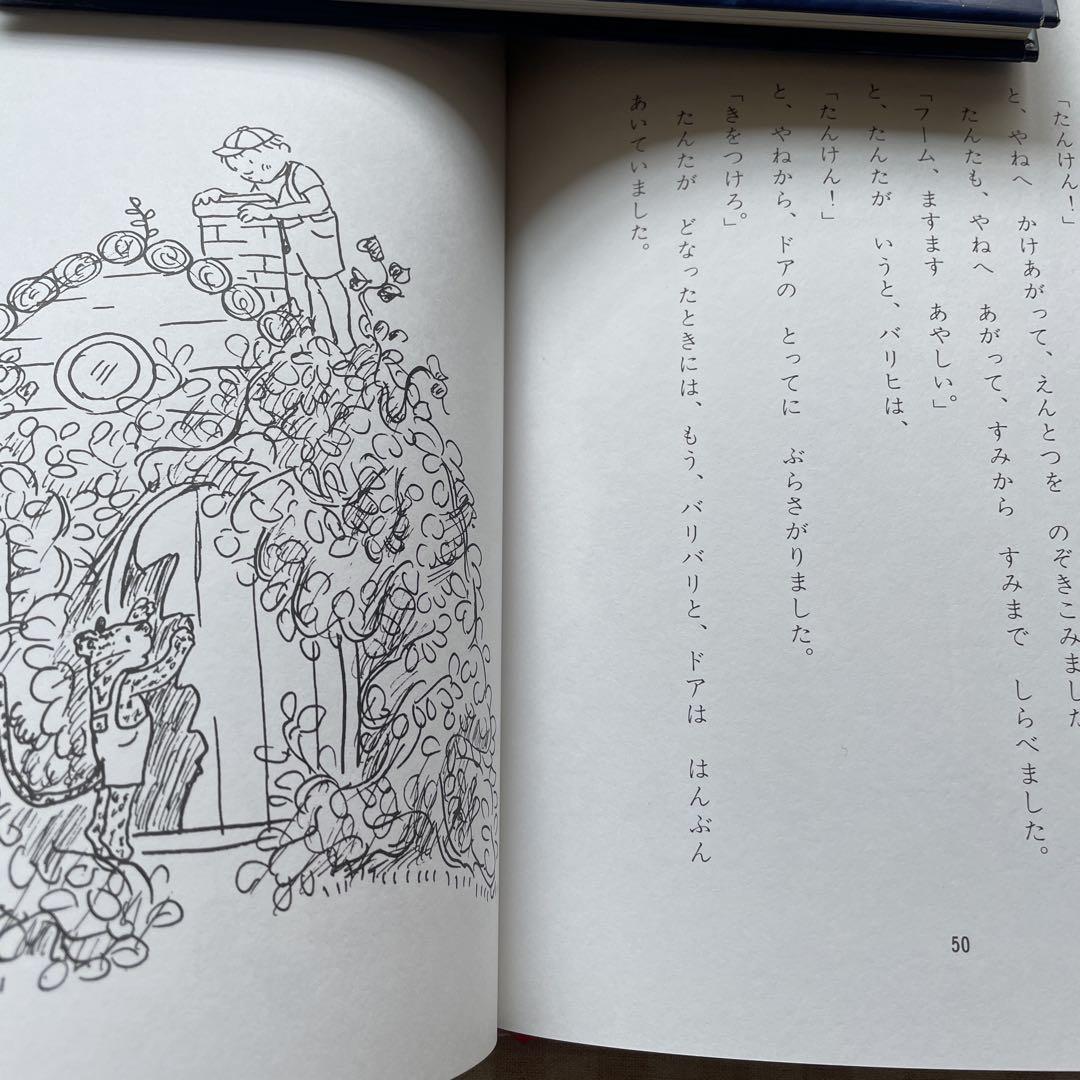 「たんけん！」
と、やねへ　かけあがって、えんとつを　のぞきこみました
たんたも、やねへ　あがって、すみから　すみまで　しらべました。
「フーム、ますます　あやしい。」
と、たんたが　いうと、バリヒは、
「たんけん！」
と、やねから、ドアの　とってに　ぶらさがりました。
「きをつけろ。」
たんたが　どなったときには、もう、バリバリと、ドアは　はんぶん
あいていました。
50